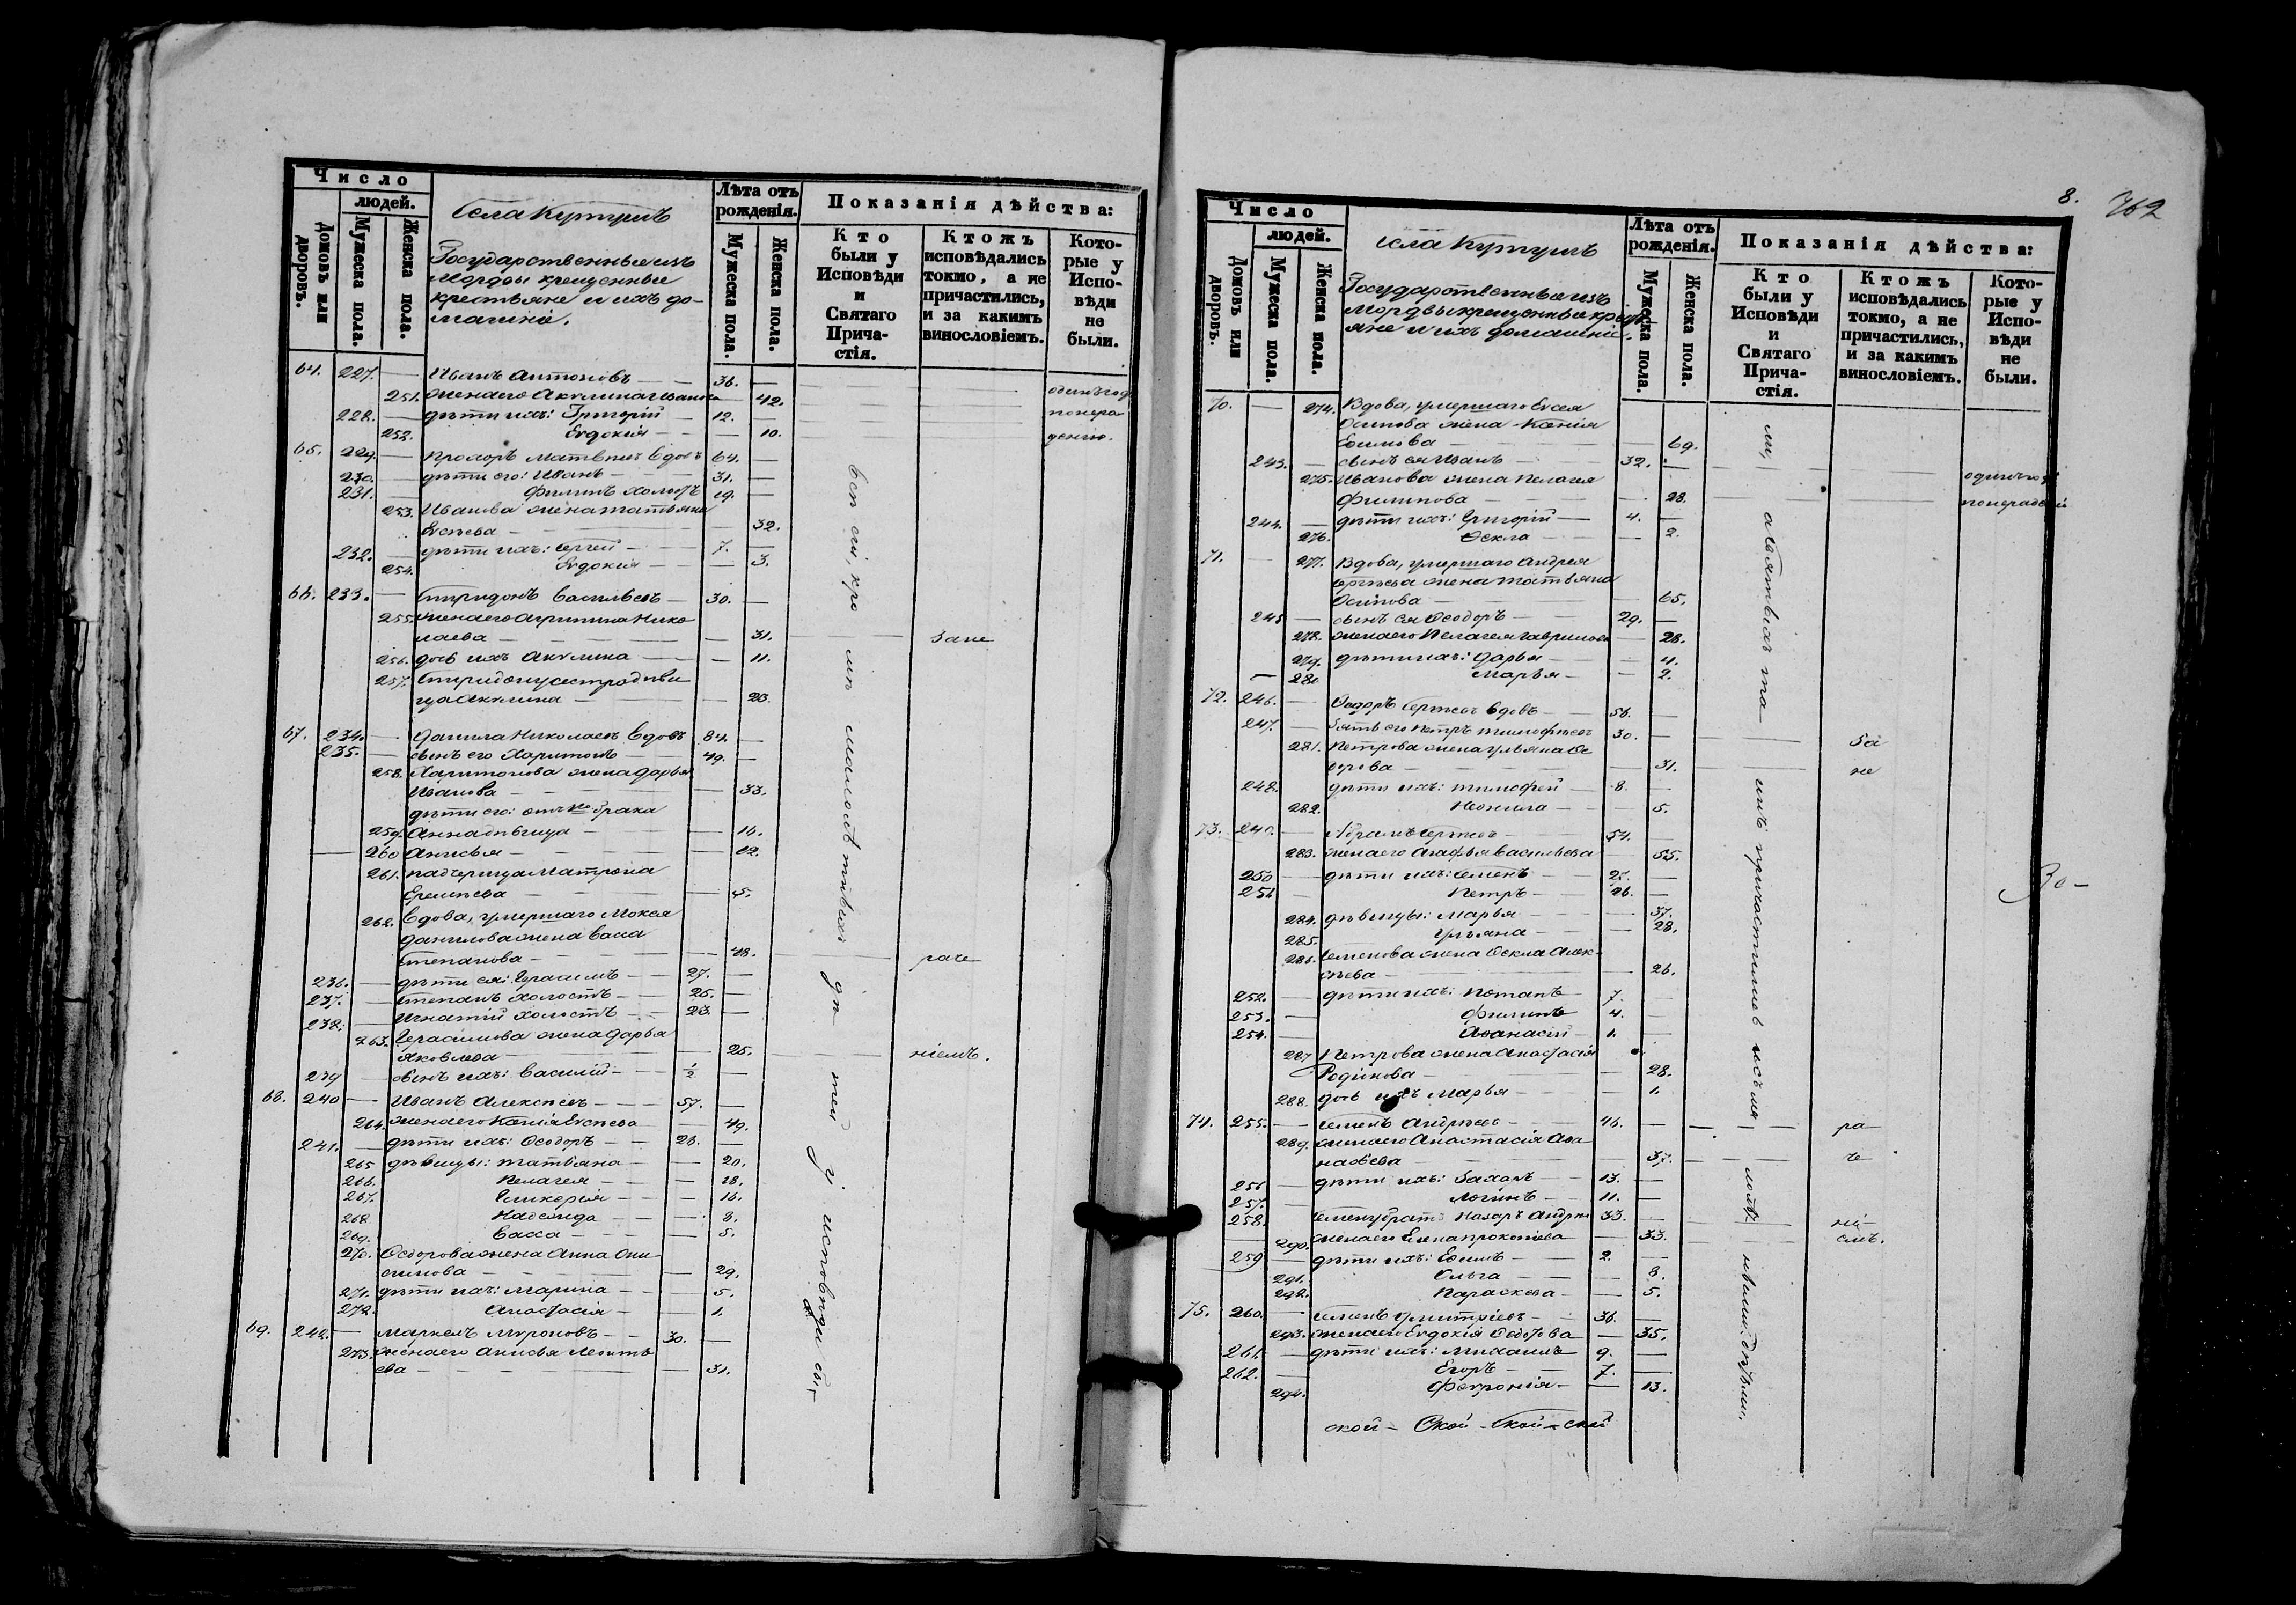 Число
людей.
Домовъ или дворовъ.
Мужеска пола.
Женска пола.
Села Куртумъ
Государственные изъ
Мордвы крещенные
крестьяне и ихъ до-
машніе.
Лѣта отъ рожденія.
Мужеска пола.
Женска пола.
Показанія дѣйства:
Кто были у Исповѣди и Святаго Прича-стія.
Ктожъ исповѣдались токмо, а не причастились, и за какимъ винословіемъ.
Кото-рые у Испо-вѣди не были.
64. 227. — Иванъ Антоновъ — 36. —
251. жена его Акулина Иванова — 42. одинъ год
228. — дѣти ихъ: Григорій — 12. понера
252. Евдокія — — 10. денію.
65. 229. — Прохоръ Матвѣевъ вдовъ 64. —
230. — дѣти его: Иванъ — 31. —
231. — Филипъ холостъ 19. —
253. Иванова жена Татьяна
Евсѣева — — 32.
232. — дѣти ихъ: Сергей — 7. —
254. Евдокія — — 3.
66. 233. — Спиридонъ Васильевъ — 30. —
255. жена его Агрипина Нико
лаева — — 31. — за не
256. дочь ихъ Акулина — — 11.
257. Спиридону сестра дѣви
ца Акулина — — 20.
67. 234. — Данила Николаевъ вдовъ 84. —
235. — сынъ его Харитонъ — 49. —
258. Харитонова жена Дарья
Иванова — — 33.
дѣти его: отъ 1го брака
259. Анна дѣвица — — 16.
— 260 Анисья — — 12.
261. падчерица Матрона
Еремѣева — — 5.
262. Вдова, умершаго Мокея
Данилова жена Васса
Степанова — — 48. — раче
236. — дѣти ея: Герасимъ — 27. —
237. — Степанъ холостъ — 25. —
238. — Игнатій холостъ — 23. —
263. Герасимова жена Дарья
Яковлева — — 25. — ніемъ.
239 — сынъ ихъ: Василій — ½ —
68. 240 — Иванъ Алексѣевъ — 57. —
264. жена его Ксенія Евсѣева — 49.
241. — дѣти ихъ: Ѳеодоръ — 28. —
265 дѣвицы: Татьяна — — 20.
266. Пелагея — — 18.
267. Гликерія — — 16.
268. Надежда — — 8.
269. Васса — — 5.
270. Ѳедорова жена Анна Они
симова — — 29.
271. дѣти ихъ: Марина — — 5.
272. Анастасія — — 1.
69. 242. — Маркелъ Мироновъ — 30. —
273. жена его Анисья Леонть
ева — — 31.
всѣ сіи, кро мѣ малолѣтныхъ дѣ тей у исповѣди бы-
8. 762
Число
людей.
Домовъ или дворовъ.
Мужеска пола.
Женска пола.
села Куртумъ
Государственные изъ
Мордвы крещенные крест
яне и ихъ домашніе.
Лѣта отъ рожденія.
Мужеска пола.
Женска пола.
Показанія дѣйства:
Кто были у Исповѣди и Святаго Прича-стія.
Ктожъ исповѣдались токмо, а не причастились, и за какимъ винословіемъ.
Кото-рые у Испо-вѣди не были.
70. — 274. Вдова, умершаго Евсея
Осипова жена Ксенія
Ефимова — — 69.
243. — сынъ ея Иванъ — 32. —
275. Иванова жена Пелагея одинъ год
Филипова — — 28. понерадѣні
244. — дѣти ихъ: Григорій — 4. —
276. Ѳекла — — 2.
71. — 277. Вдова, умершаго Андрея
Сергѣева жена Татьяна
Осипова — — 65.
245 — сынъ ея Ѳеодоръ — 29. —
278. жена его Пелагея Гаврилова — 28.
279. дѣти ихъ: Дарья — — 4.
— 280 Марья — — 2.
72. 246. — Ѳедоръ Сергѣевъ вдовъ — 56. —
247. — Зять его Петръ Тимофѣевъ 30. — за
281. Петрова жена Ульяна Ѳе
дорова — — 31. не
248. дѣти ихъ: Тимофей — 8. —
282. Неонила — — 5.
73. 249. — Абрамъ Сергѣевъ — 54. —
283. жена его Агафья Васильева — 55.
250 — дѣти ихъ: Семенъ — 28. —
251 — Петръ — 26. —
284. дѣвицы: Марья — — 37.
285. Ульяна — — 28.
286. Семенова жена Ѳекла Алек-
сѣева — — 26.
252. — дѣти ихъ: Потапъ — 7. —
253. — Филипъ — 4. —
254. — Аѳанасій — 1. —
287 Петрова жена Анастасія
Родіонова — — 28.
288. дочь ихъ Марья — — 1.
74. 255. — Семенъ Андрѣевъ — 46. — ра
289. жена его Анастасія Аѳа
насьева — — 37. че
256 — дѣти ихъ: Захаръ — 13. —
257. — Логинъ — 11. —
258. Семену братъ Назаръ Андрѣев 33. — ні-
290. жена его Елена Прокопіева — 33. емъ.
259 — дѣти ихъ: Ефимъ — 2. —
291. Ольга — — 8.
292. Параскева — — 5.
75. 260. — Семенъ Дмитріевъ — 36. —
293. жена его Евдокія Ѳедотова — 35.
261. — дѣти ихъ: Михаилъ — 9. —
262. — Егоръ — 7. —
294. Февронія — — 13.